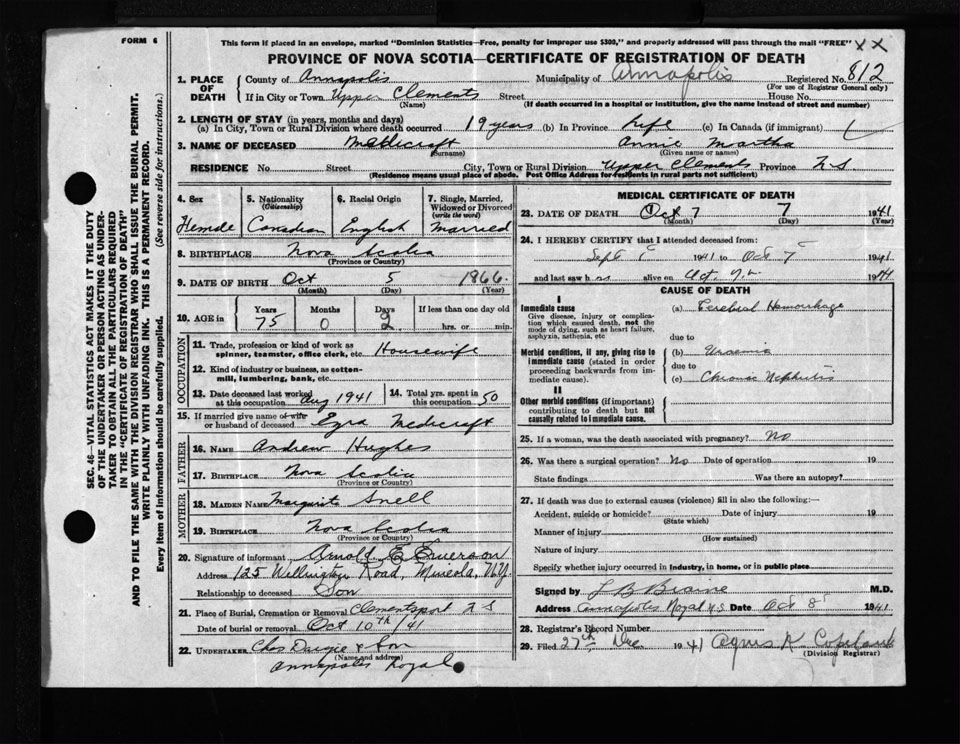 FORM 6
This form if placed in an envelope, marked "Dominion Statistics—Free, penalty for improper use $300," and properly addressed will pass through the mail "FREE" XX
PROVINCE OF NOVA SCOTIA—CERTIFICATE OF REGISTRATION OF DEATH
SEC. 46—VITAL STATISTICS ACT MAKES IT THE DUTY
OF THE UNDERTAKER OR PERSON ACTING AS UNDER-
TAKER TO OBTAIN ALL THE PARTICULARS REQUIRED
IN THE "CERTIFICATE OF REGISTRATION OF DEATH"
AND TO FILE THE SAME WITH THE DIVISION REGISTRAR WHO SHALL ISSUE THE BURIAL PERMIT.
WRITE PLAINLY WITH UNFADING INK. THIS IS A PERMANENT RECORD.
Every item of information should be carefully supplied. (See reverse side for instructions.)
1. PLACE OF DEATH
County of Annapolis Municipality of Annapolis Registered No. 812
(For use of Registrar General only)
If in City or Town Upper Clements Street House No.
(Name) (If death occurred in a hospital or institution, give the name instead of street and number)
2. LENGTH OF STAY (in years, months and days)
(a) In City, Town or Rural Division where death occurred 19 years (b) In Province Life (c) In Canada (if immigrant)
3. NAME OF DECEASED Medicraft Annie Martha
(Surname) (Given name or names)
RESIDENCE No Street City, Town or Rural Division Upper Clements Province N.S.
(Residence means usual place of abode. Post Office Address for residents in rural parts not sufficient)
4. Sex
Female
5. Nationality
(Citizenship)
Canadian
6. Racial Origin
English
7. Single, Married,
Widowed or Divorced
(write the word)
Married
8. BIRTHPLACE Nova Scotia
(Province or Country)
9. DATE OF BIRTH Oct 5 1866
(Month) (Day) (Year)
10. AGE in Years Months Days If less than one day old
75 0 2 hrs. or min.
OCCUPATION
11. Trade, profession or kind of work as
spinner, teamster, office clerk, etc. Housewife
12. Kind of industry or business, as cotton-
mill, lumbering, bank, etc.
13. Date deceased last worked
at this occupation Aug 1941
14. Total yrs. spent in
this occupation 50
15. If married give name of wife
or husband of deceased Ezra Medicraft
FATHER
16. NAME Andrew Hughes
17. BIRTHPLACE Nova Scotia
(Province or Country)
MOTHER
18. MAIDEN NAME Margurite Snell
19. BIRTHPLACE Nova Scotia
(Province or Country)
20. Signature of informant Arnold E Emerson
Address 125 Wellington Road, Mineola, N.Y.
Relationship to deceased Son
21. Place of Burial, Cremation or Removal Clementsport N S
Date of burial or removal Oct 10th /41
22. UNDERTAKER Chas Dargie & Son
(Name and address)
Annapolis Royal
MEDICAL CERTIFICATE OF DEATH
23. DATE OF DEATH Oct 7 7 1941
(Month) (Day) (Year)
24. I HEREBY CERTIFY that I attended deceased from:
Sept 1941 to Oct 7 1941
and last saw h alive on Oct. 7 1941
CAUSE OF DEATH
I
Immediate cause
Give disease, injury or complica-
tion which caused death, not the
mode of dying, such as heart failure,
asphyxia, asthenia, etc
(a) Cerebral Hemorrhage
due to
Morbid conditions, if any, giving rise to
immediate cause (stated in order
proceeding backwards from im-
mediate cause).
(b) Uraemia
due to
(c) Chronic Nephritis
II
Other morbid conditions (if important)
contributing to death but not
causally related to immediate cause.
25. If a woman, was the death associated with pregnancy? No
26. Was there a surgical operation? No Date of operation 19
State findings Was there an autopsy?
27. If death was due to external causes (violence) fill in also the following:—
Accident, suicide or homicide? Date of injury 19
(State which)
Manner of injury
(How sustained)
Nature of injury
Specify whether injury occurred in industry, in home, or in public place
Signed by L B Braine M.D.
Address Annapolis Royal N.S Date Oct 8 1941
28. Registrar's Record Number
29. Filed 27th Dec 1941 Agnes K
(Division Registrar)